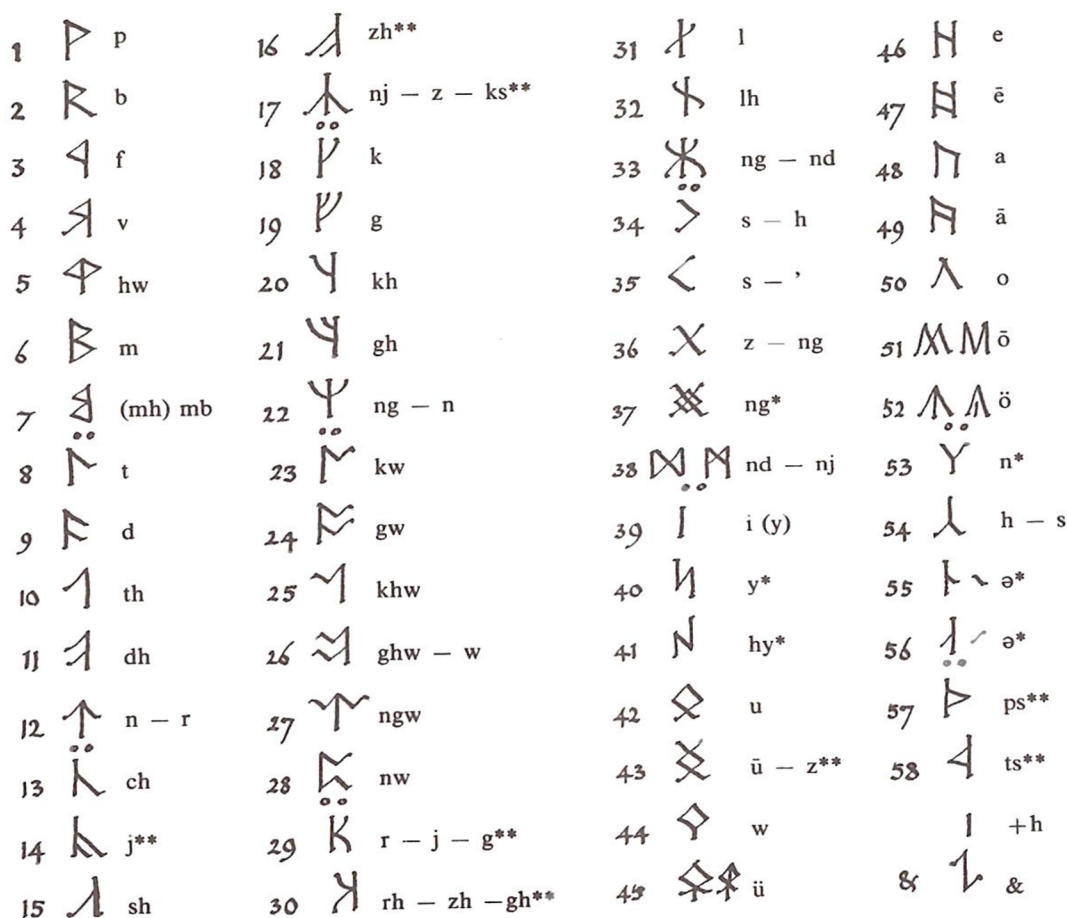 1 p
2 b
3 f
4 v
5 hw
6 m
7 (mh) mb
8 t
9 d
10 th
11 dh
12 n – r
13 ch
14 j**
15 sh
16 zh**
17 nj – z – ks**
18 k
19 g
20 kh
21 gh
22 ng – n
23 kw
24 gw
25 khw
26 ghw – w
27 ngw
28 nw
29 r – j – g**
30 rh – zh –gh**
31 l
32 lh
33 ng – nd
34 s – h
35 s – ’
36 z – ng
37 ng*
38 nd – nj
39 i (y)
40 y*
41 hy*
42 u
43 ū – z**
44 w
45 ü
46 e
47 ē
48 a
49 ā
50 o
51 ō
52 ö
53 n*
54 h – s
55 ə*
56 ə*
57 ps**
58 ts**
+h
& &